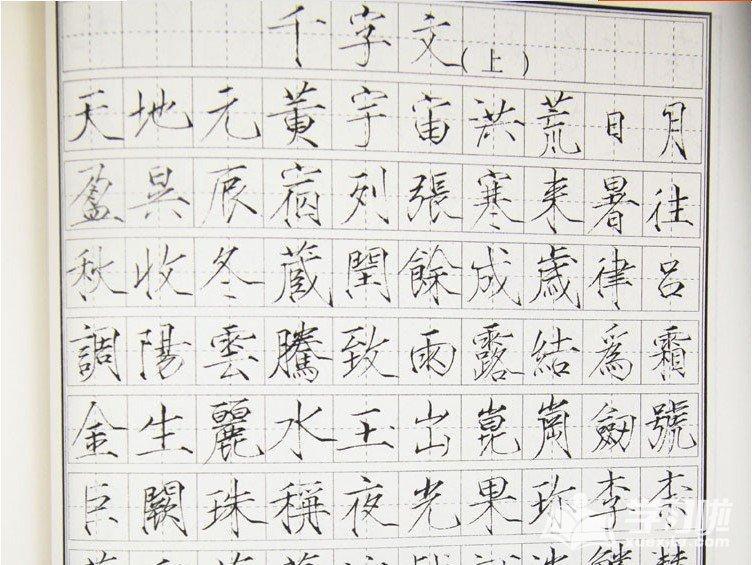 千字文(上)
天地元黄宇宙洪荒日月
盈昃辰宿列張寒来暑往
秋收冬藏閏餘成歲律呂
調陽雲騰致雨露結爲霜
金生麗水玉出崑崗劒號
巨闕珠稱夜光果珍李柰
学习啦
xuexila.com